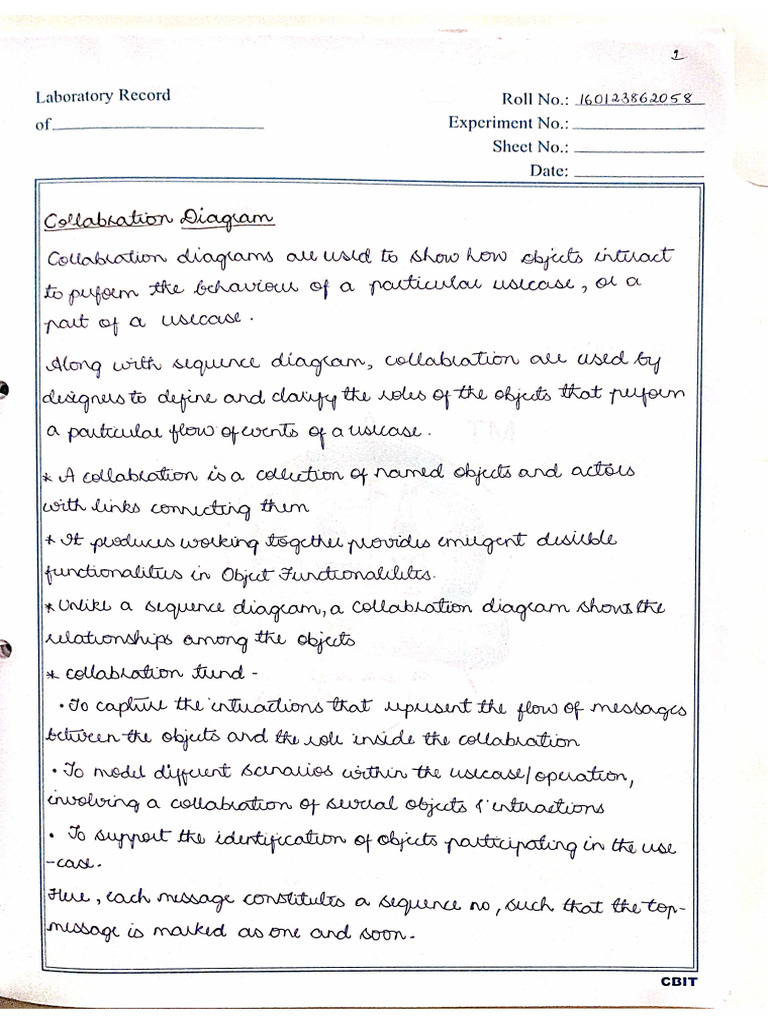 1
Laboratory Record
of
Roll No.: 160123862058
Experiment No.:
Sheet No.:
Date:
Collabration Diagram
Collabration diagrams are used to show how objects interact
to perform the behaviour of a particular usecase, or a
part of a usecase.
Along with sequence diagram, collabration are used by
designers to define and clarify the roles of the objects that perform
a particular flow of events of a usecase.
* A collabration is a collection of named objects and actors
with links connecting them
* It produces working together provides emergent desirble
functionalities in Object Functionalilites.
* Unlike a sequence diagram, a collabration diagram shows the
relationships among the objects
* collabration trend -
• To capture the interactions that represent the flow of messages
between the objects and the role inside the collabration
• To model different scenarios within the usecase/operation,
involving a collabration of several objects & interactions
• To support the identification of objects participating in the use
-case.
Here, each message constitutes a sequence no, such that the top-
-message is marked as one and soon.
CBIT